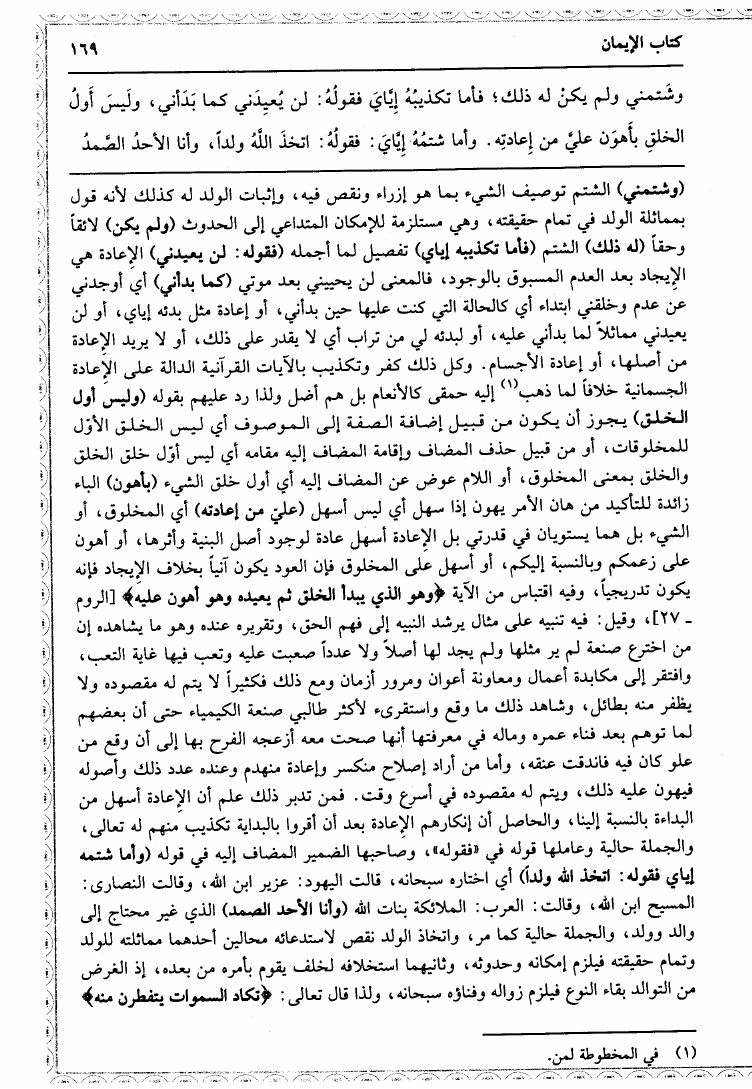 كتاب الإيمان
١٦٩
وشَتمني ولم يكنْ له ذلك؛ فأما تكذيبُهُ إِيَّايَ فقولُهُ: لن يُعيدَني كما بَدَأني، ولَيسَ أولُ
الخلقِ بِأَهوَن عليَّ من إِعادتِه. وأما شتمُهُ إِيَّايَ: فقولُهُ: اتخذَ اللَّهُ ولداً، وأنا الأحدُ الصَّمدُ
(وشتمني) الشتم توصيف الشيء بما هو إزراء ونقص فيه، وإثبات الولد له كذلك لأنه قول
بمماثلة الولد في تمام حقيقته، وهي مستلزمة للإمكان المتداعي إلى الحدوث (ولم يكن) لائقاً
وحقاً (له ذلك) الشتم (فأما تكذيبه إياي) تفصيل لما أجمله (فقوله: لن يعيدني) الإعادة هي
الإيجاد بعد العدم المسبوق بالوجود، فالمعنى لن يحييني بعد موتي (كما بدأني) أي أوجدني
عن عدم وخلقني ابتداء أي كالحالة التي كنت عليها حين بدأني، أو إعادة مثل بدئه إياي، أو لن
يعيدني مماثلاً لما بدأني عليه، أو لبدئه لي من تراب أي لا يقدر على ذلك، أو لا يريد الإعادة
من أصلها، أو إعادة الأجسام. وكل ذلك كفر وتكذيب بالآيات القرآنية الدالة على الإعادة
الجسمانية خلافاً لما ذهب(١) إليه حمقى كالأنعام بل هم أضل ولذا رد عليهم بقوله (وليس أول
الخلق) يجوز أن يكون من قبيل إضافة الصفة إلى الموصوف أي ليس الخلق الأوّل
للمخلوقات، أو من قبيل حذف المضاف وإقامة المضاف إليه مقامه أي ليس أوّل خلق الخلق
والخلق بمعنى المخلوق، أو اللام عوض عن المضاف إليه أي أول خلق الشيء (بأهون) الباء
زائدة للتأكيد من هان الأمر يهون إذا سهل أي ليس أسهل (عليّ من إعادته) أي المخلوق، أو
الشيء بل هما يستويان في قدرتي بل الإعادة أسهل عادة لوجود أصل البنية وأثرها، أو أهون
على زعمكم وبالنسبة إليكم، أو أسهل على المخلوق فإن العود يكون آنياً بخلاف الإيجاد فإنه
يكون تدريجياً، وفيه اقتباس من الآية ﴿وهو الذي يبدأ الخلق ثم يعيده وهو أهون عليه﴾ [الروم
ـ ٢٧]، وقيل: فيه تنبيه على مثال يرشد النبيه إلى فهم الحق، وتقريره عنده وهو ما يشاهده إن
من اخترع صنعة لم ير مثلها ولم يجد لها أصلاً ولا عدداً صعبت عليه وتعب فيها غاية التعب،
وافتقر إلى مكابدة أعمال ومعاونة أعوان ومرور أزمان ومع ذلك فكثيراً لا يتم له مقصوده ولا
يظفر منه بطائل، وشاهد ذلك ما وقع واستقرىء لأكثر طالبي صنعة الكيمياء حتى أن بعضهم
لما توهم بعد فناء عمره وماله في معرفتها أنها صحت معه أزعجه الفرح بها إلى أن وقع من
علو كان فيه فاندقت عنقه، وأما من أراد إصلاح منكسر وإعادة منهدم وعنده عدد ذلك وأصوله
فيهون عليه ذلك، ويتم له مقصوده في أسرع وقت. فمن تدبر ذلك علم أن الإعادة أسهل من
البداءة بالنسبة إلينا، والحاصل أن إنكارهم الإعادة بعد أن أقروا بالبداية تكذيب منهم له تعالى،
والجملة حالية وعاملها قوله في «فقوله»، وصاحبها الضمير المضاف إليه في قوله (وأما شتمه
إياي فقوله: اتخذ الله ولداً) أي اختاره سبحانه، قالت اليهود: عزير ابن الله، وقالت النصارى:
المسيح ابن الله، وقالت: العرب: الملائكة بنات الله (وأنا الأحد الصمد) الذي غير محتاج إلى
والد وولد، والجملة حالية كما مر، واتخاذ الولد نقص لاستدعائه محالين أحدهما مماثلته للولد
وتمام حقيقته فيلزم إمكانه وحدوثه، وثانيهما استخلافه لخلف يقوم بأمره من بعده، إذ الغرض
من التوالد بقاء النوع فيلزم زواله وفناؤه سبحانه، ولذا قال تعالى: ﴿تكاد السموات يتفطرن منه﴾
(١) في المخطوطة لمن.